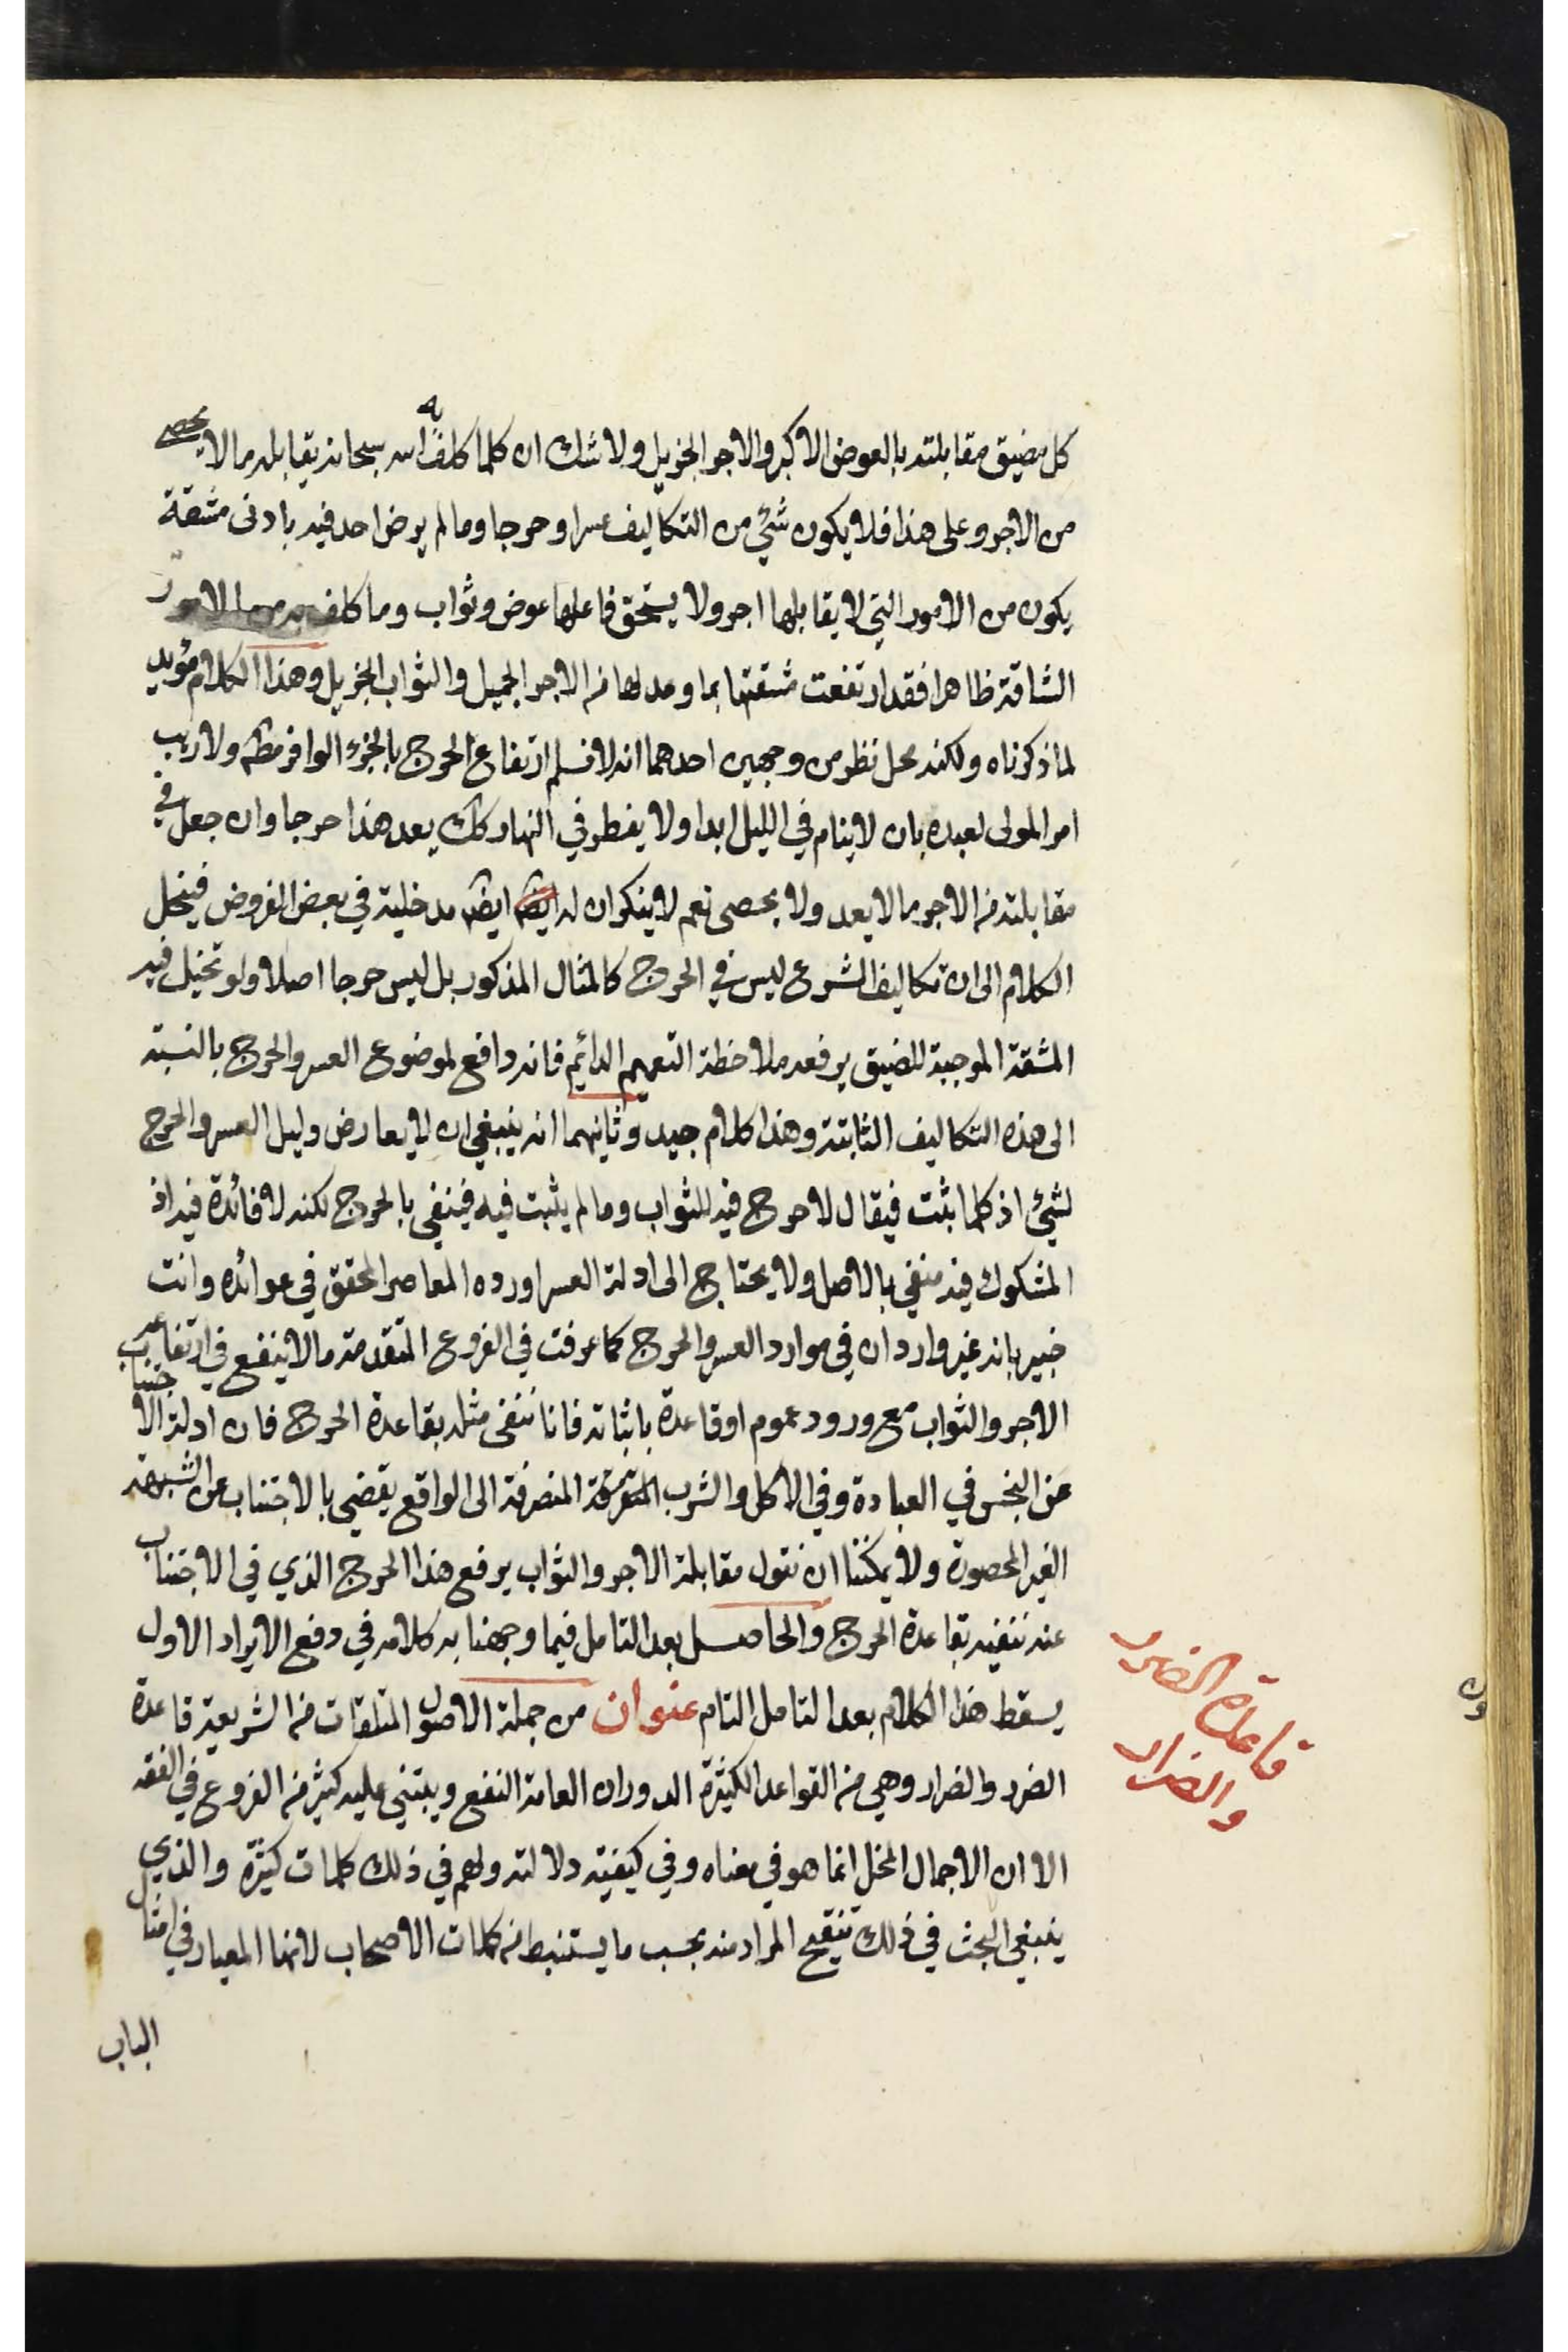 كل مضيق مقابلته بالعوض الاكبر والاجر الجزيل ولا شك ان كلما كلف به الله سبحانه يقابله ما لا يحصى
من الاجر وعلى هذا فلا يكون شئ من التكاليف عسرا وحرجا وما لم يرض احد فيه بادنى مشقة
يكون من الامور التي لا يقابلها اجر ولا يستحق فاعلها عوض وثواب وما كلف به من الامور
الشاقة ظاهرا فقد ارتفعت مشقتها بما وعد لها من الاجر الجميل والثواب الجزيل وهذا الكلام مؤيد
لما ذكرناه ولكنه محل نظر من وجهين احدهما انه لا نسلم ارتفاع الحرج بالجزء الوافر مطه ولا ريب
امر المولى لعبده بان لا ينام في الليل ابدا ولا يفطر في النهار كك يعد هذا حرجا وان جعل في
مقابلته من الاجر ما لا يعد ولا يحصى نعم لا ينكر ان له ايضه ايضه مدخلية في بعض الفروض فينحل
الكلام الى ان تكاليف الشرع ليس في الحرج كالمثال المذكور بل ليس حرجا اصلا ولو تخيل فيه
المشقة الموجبة للضيق يرفعه ملاحظة التعميم الدائم فانه دافع لموضوع العسر والحرج بالنسبة
الى هذه التكاليف الثابتة وهذا كلام جيد وثانيهما انه ينبغي ان لا يعارض دليل العسر والحرج
لشئ اذ كلما ثبت فيقال لا حرج فيه للثواب وما لم يثبت فيه فينفى بالحرج لكنه لا فائدة فيه اذ
المشكوك فيه منفي بالاصل ولا يحتاج الى ادلة العسر اورده المعاصر المحقق في عوائده وانت
خبير بانه غير وارد ان في موارد العسر والحرج كما عرفت في الفروع المتقدمة ما لا ينفع في ارتفاعه
الاجر والثواب مع ورود عموم او قاعدة باثباته فانا ننفى مثله بقاعدة الحرج فان ادلة الاجتناب
عن النجس في العبادة وفي الاكل والشرب المتفرقة المنصرفة الى الواقع يقضي بالاجتناب عن الشبهة
الغير المحصورة ولا يمكننا ان نقول مقابلة الاجر والثواب يرفع هذا الحرج الذي في الاجتناب
عنه ننفيه بقاعدة الحرج والحاصل بعد التامل فيما وجهنا به كلامه في دفع الايراد الاول
يسقط هذا الكلام بعد التامل التام عنوان من جملة الاصول المتلقات من الشريعة قاعدة
الضرر والضرار وهي من القواعد الكثيرة الدوران العامة النفع ويبتني عليه كثير من الفروع في الفقه
الا ان الاجمال المخل انما هو في معناه وفي كيفية دلالته ولهم في ذلك كلمات كثيرة والذي
ينبغي البحث في ذلك تنقيح المراد منه بحسب ما يستنبط من كلمات الاصحاب لانها المعيار في امثال
قاعدة الضرر
والضرار
الباب